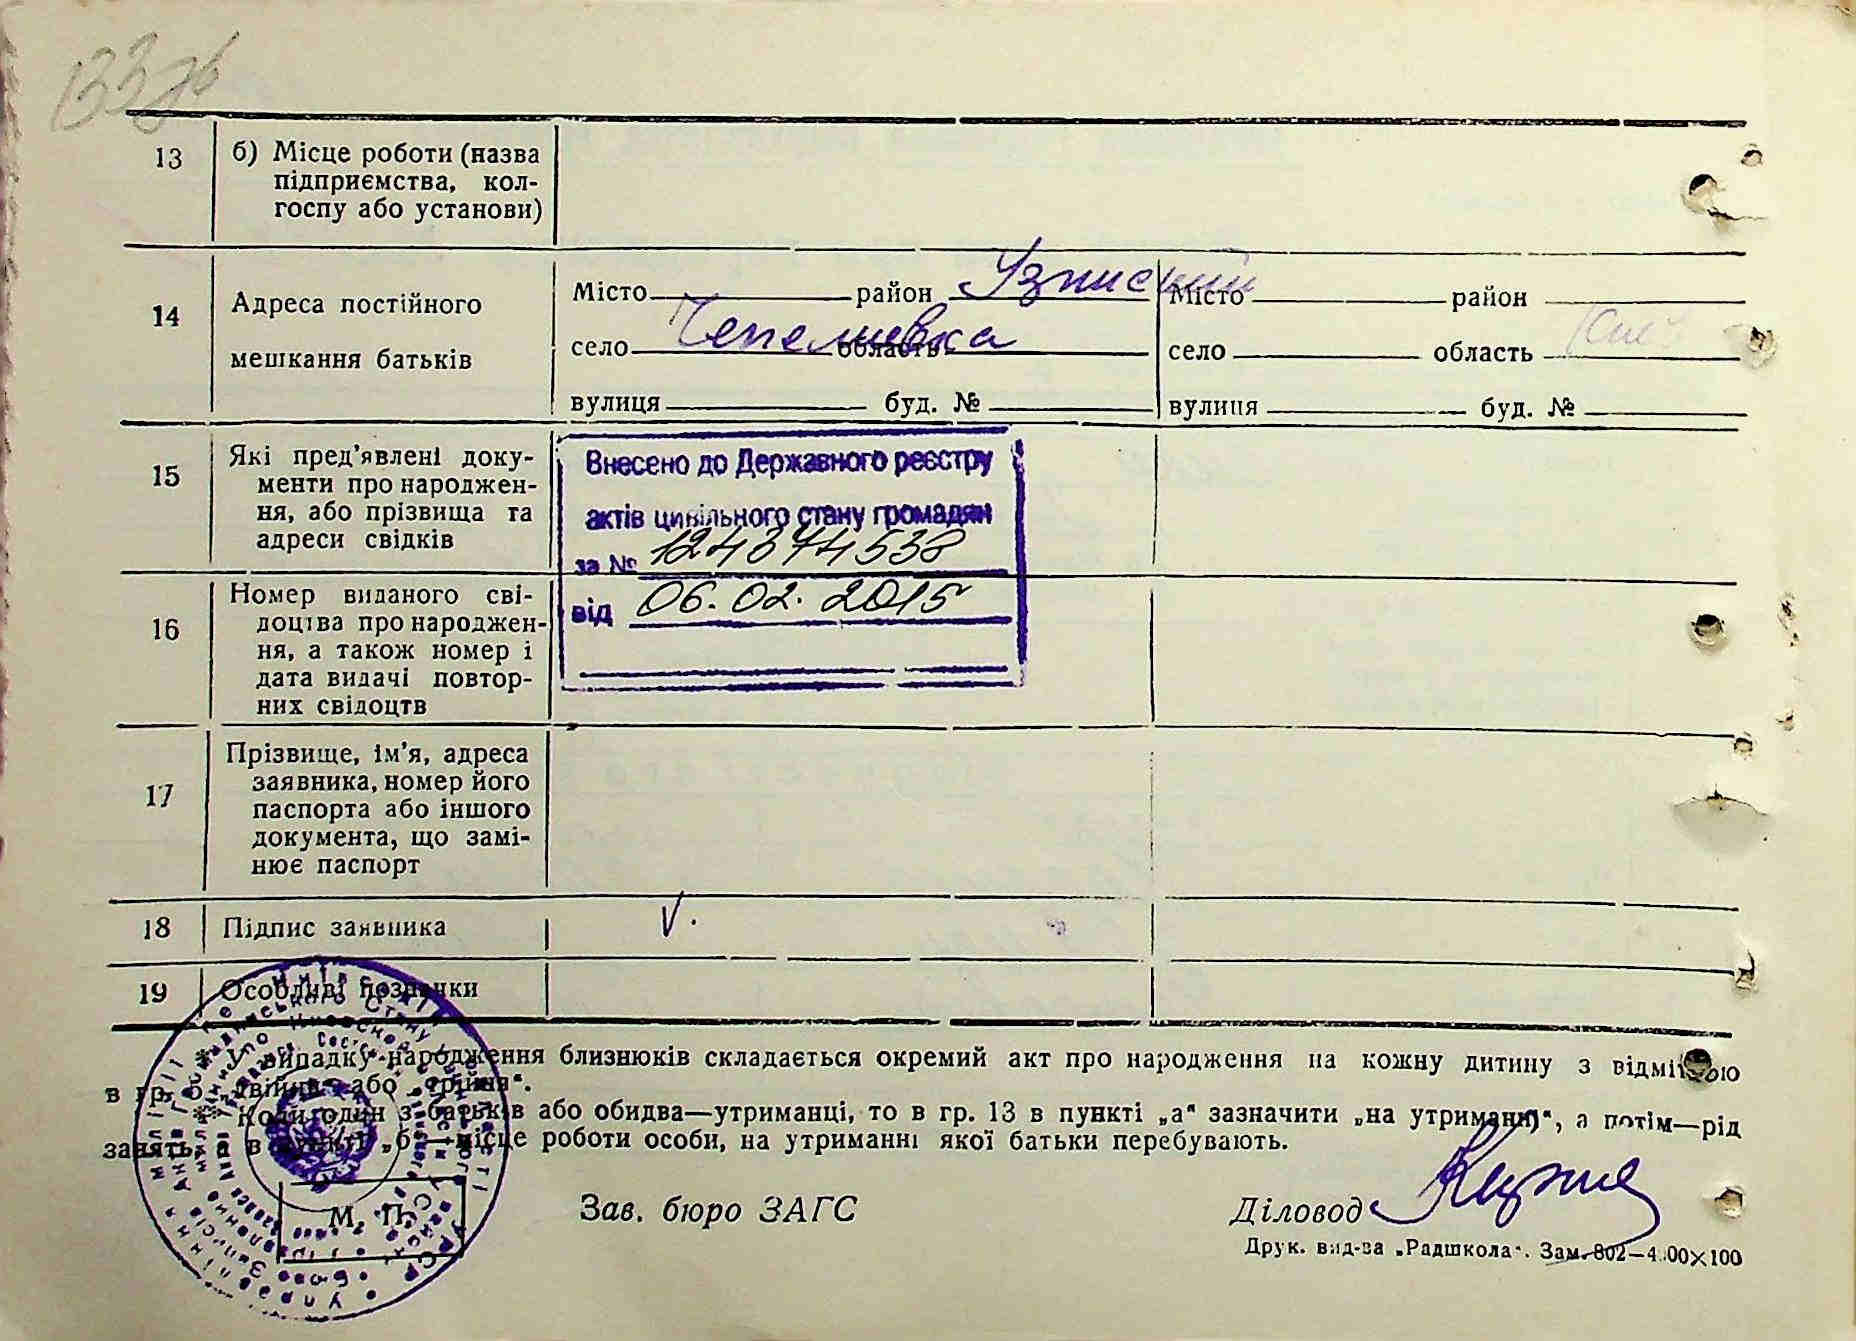 13
б) Місце роботи (назва
підприємства, кол-
госпу або установи)
14
Адреса постійного
мешкання батьків
Місто район Узинський
село Чепелиевка область
вулиця буд. №
Місто район
село область
вулиця буд. №
15
Які пред’явлені доку-
менти про народжен-
ня, або прізвища та
адреси свідків
Внесено до Державного реєстру
актів цивільного стану громадян
за №
від 06.02.2015
16
Номер виданого сві-
доцтва про народжен-
ня, а також номер і
дата видачі повтор-
них свідоцтв
17
Прізвище, ім’я, адреса
заявника, номер його
паспорта або іншого
документа, що замі-
нює паспорт
18
Підпис заявника
V.
19
Особливі позначки
* У випадку народження близнюків складається окремий акт про народження на кожну дитину з відміткою
в гр. „двійня“ або „трійня“.
Коли один з батьків або обидва—утриманці, то в гр. 13 в пункті „а“ зазначити „на утриманні“, а потім—рід
занять, а в пункті „б“—місце роботи особи, на утриманні якої батьки перебувають.
М. П.
Зав. бюро ЗАГС
Діловод
Друк. вид-ва „Радшкола“. Зам. 802—